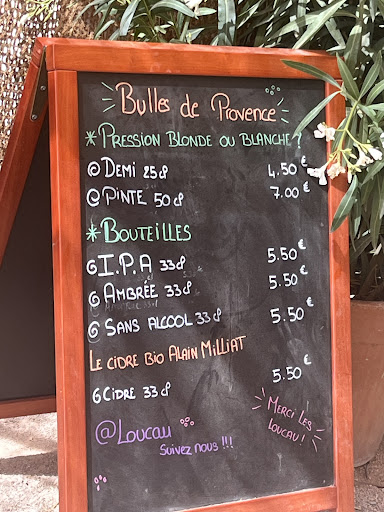 Bulles de Provence
*Pression Blonde ou Blanche ?
Demi 25cl 4.50€
Pinte 50cl 7.00€
*Bouteilles
I.P.A 33cl 5.50€
Ambrée 33cl 5.50€
Sans alcool 33cl 5.50€
Le cidre bio Alain Milliat
Cidre 33cl 5.50€
@Loucau
Suivez nous !!!
Merci les
Loucau !